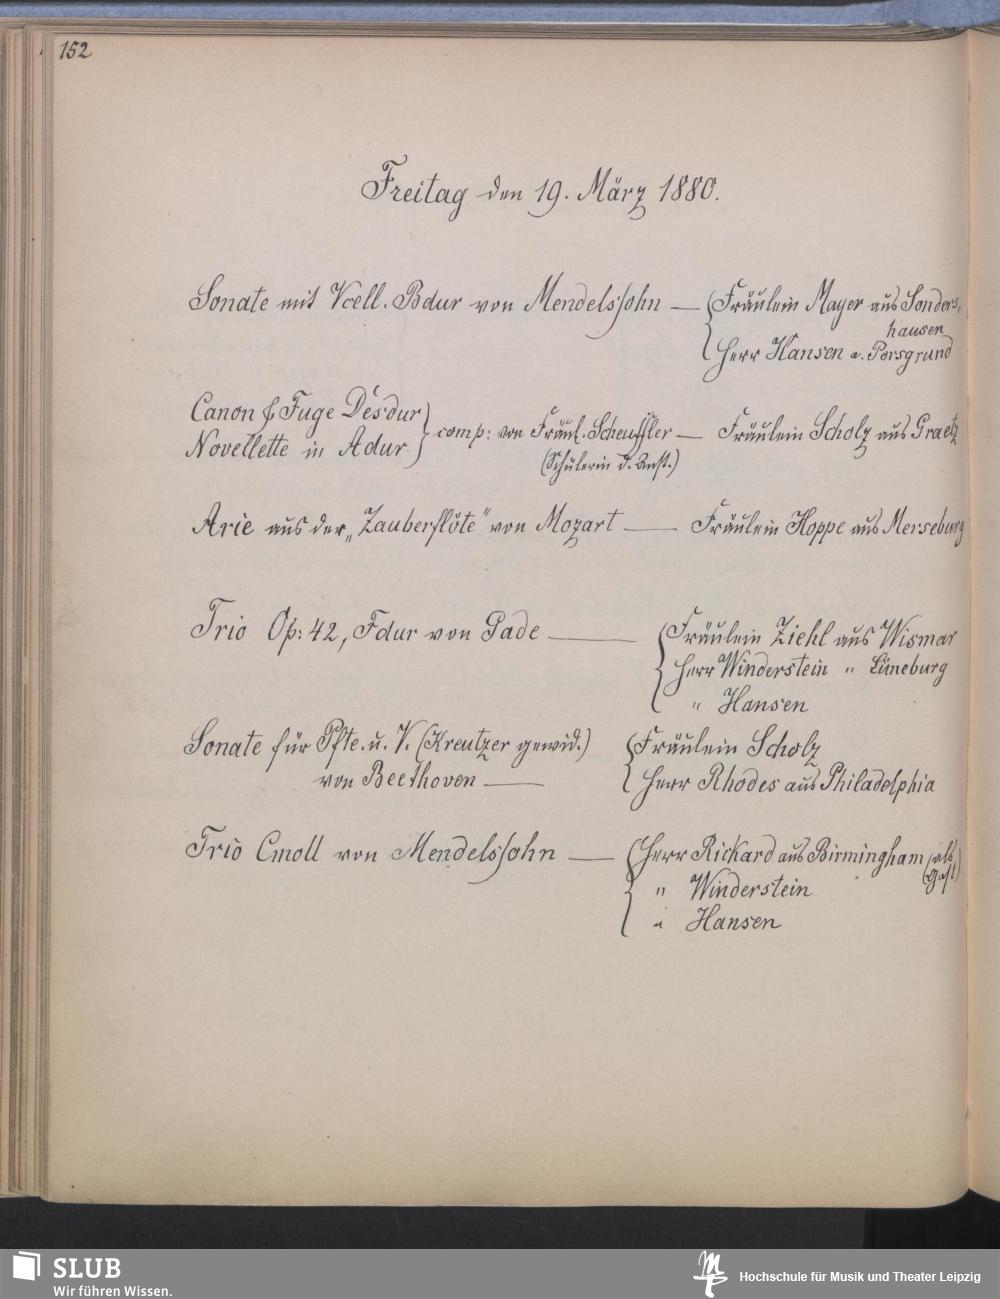 152
Freitag den 19. März 1880.
Sonate mit Vcell. Bdur von Mendelssohn — Fräulein Mayer aus Sonders-
hausen
Herr Hansen a. Porsgrund
Canon & Fuge Desdur
Novellette in Adur } comp: von Fräul. Scheuffler — Fräulein Scholz aus Graetz
(Schülerin d. Anst.)
Arie aus der „Zauberflöte“ von Mozart — Fräulein Hoppe aus Merseburg
Trio Op: 42, Fdur von Gade — Fräulein Ziehl aus Wismar
Herr Winderstein " Lüneburg
" Hansen
Sonate für Pfte. u. V. (Kreutzer gewid.) Fräulein Scholz
von Beethoven — Herr Rhodes aus Philadelphia
Trio Cmoll von Mendelssohn — Herr Rickard aus Birmingham (als
Gast)
" Winderstein
" Hansen
SLUB
Wir führen Wissen.
Hochschule für Musik und Theater Leipzig